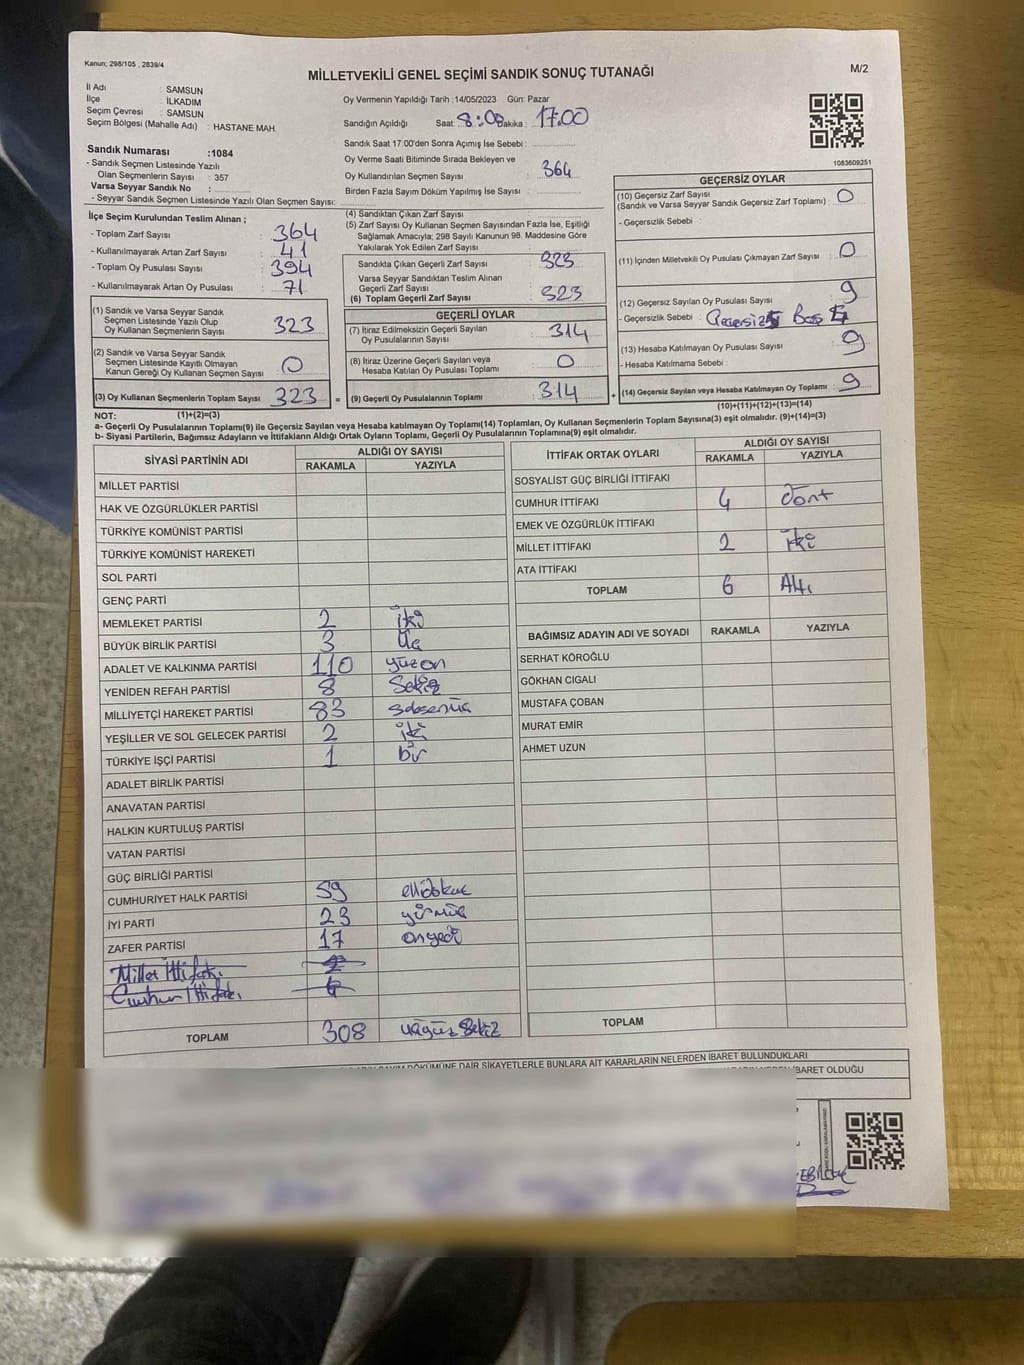 Kanun: 298/105 , 2839/4
MİLLETVEKİLİ GENEL SEÇİMİ SANDIK SONUÇ TUTANAĞI
M/2
İl Adı : SAMSUN
İlçe : İLKADIM
Seçim Çevresi : SAMSUN
Seçim Bölgesi (Mahalle Adı) : HASTANE MAH.
Sandık Numarası :1084
- Sandık Seçmen Listesinde Yazılı
Olan Seçmenlerin Sayısı : 357
Varsa Seyyar Sandık No :
- Seyyar Sandık Seçmen Listesinde Yazılı Olan Seçmen Sayısı:
Oy Vermenin Yapıldığı Tarih :14/05/2023 Gün: Pazar
Sandığın Açıldığı Saat 8:00 Dakika : 17:00
Sandık Saat 17:00'den Sonra Açımış İse Sebebi :
Oy Verme Saati Bitiminde Sırada Bekleyen ve
Oy Kullandırılan Seçmen Sayısı : 364
Birden Fazla Sayım Döküm Yapılmış İse Sayısı :
1083609251
İlçe Seçim Kurulundan Teslim Alınan ;
- Toplam Zarf Sayısı : 364
- Kullanılmayarak Artan Zarf Sayısı : 41
- Toplam Oy Pusulası Sayısı : 394
- Kullanılmayarak Artan Oy Pusulası : 71
(1) Sandık ve Varsa Seyyar Sandık
Seçmen Listesinde Yazılı Olup
Oy Kullanan Seçmenlerin Sayısı : 323
(2) Sandık ve Varsa Seyyar Sandık
Seçmen Listesinde Kayıtlı Olmayan
Kanun Gereği Oy Kullanan Seçmen Sayısı : 0
(3) Oy Kullanan Seçmenlerin Toplam Sayısı : 323 =
(4) Sandıktan Çıkan Zarf Sayısı :
(5) Zarf Sayısı Oy Kullanan Seçmen Sayısından Fazla İse, Eşitliği
Sağlamak Amacıyla; 298 Sayılı Kanunun 98. Maddesine Göre
Yakılarak Yok Edilen Zarf Sayısı :
Sandıkta Çıkan Geçerli Zarf Sayısı : 323
Varsa Seyyar Sandıktan Teslim Alınan
Geçerli Zarf Sayısı :
(6) Toplam Geçerli Zarf Sayısı : 323
GEÇERLİ OYLAR
(7) İtiraz Edilmeksizin Geçerli Sayılan
Oy Pusulalarının Sayısı : 314
(8) İtiraz Üzerine Geçerli Sayılan veya
Hesaba Katılan Oy Pusulası Toplamı : 0
(9) Geçerli Oy Pusulalarının Toplamı : 314 +
GEÇERSİZ OYLAR
(10) Geçersiz Zarf Sayısı
(Sandık ve Varsa Seyyar Sandık Geçersiz Zarf Toplamı) : 0
- Geçersizlik Sebebi :
(11) İçinden Milletvekili Oy Pusulası Çıkmayan Zarf Sayısı : 0
(12) Geçersiz Sayılan Oy Pusulası Sayısı : 9
- Geçersizlik Sebebi :
(13) Hesaba Katılmayan Oy Pusulası Sayısı : 9
- Hesaba Katılmama Sebebi :
(14) Geçersiz Sayılan veya Hesaba Katılmayan Oy Toplamı : 9
NOT: (1)+(2)=(3) (10)+(11)+(12)+(13)=(14)
a- Geçerli Oy Pusulalarının Toplamı(9) ile Geçersiz Sayılan veya Hesaba katılmayan Oy Toplamı(14) Toplamları, Oy Kullanan Seçmenlerin Toplam Sayısına(3) eşit olmalıdır. (9)+(14)=(3)
b- Siyasi Partilerin, Bağımsız Adayların ve İttifakların Aldığı Ortak Oyların Toplamı, Geçerli Oy Pusulalarının Toplamına(9) eşit olmalıdır.
SİYASİ PARTİNİN ADI ALDIĞI OY SAYISI
RAKAMLA YAZIYLA
MİLLET PARTİSİ
HAK VE ÖZGÜRLÜKLER PARTİSİ
TÜRKİYE KOMÜNİST PARTİSİ
TÜRKİYE KOMÜNİST HAREKETİ
SOL PARTİ
GENÇ PARTİ
MEMLEKET PARTİSİ 2 iki
BÜYÜK BİRLİK PARTİSİ 3 Üç
ADALET VE KALKINMA PARTİSİ 110 yüzon
YENİDEN REFAH PARTİSİ 8 Sekiz
MİLLİYETÇİ HAREKET PARTİSİ 83 seksenüç
YEŞİLLER VE SOL GELECEK PARTİSİ 2 iki
TÜRKİYE İŞÇİ PARTİSİ 1 bir
ADALET BİRLİK PARTİSİ
ANAVATAN PARTİSİ
HALKIN KURTULUŞ PARTİSİ
VATAN PARTİSİ
GÜÇ BİRLİĞİ PARTİSİ
CUMHURİYET HALK PARTİSİ 59 ellidokuz
İYİ PARTİ 23 yirmiüç
ZAFER PARTİSİ 17 onyedi
Millet İttifakı 2
Cumhur İttifakı 4
TOPLAM 308 üçyüz sekiz
İTTİFAK ORTAK OYLARI ALDIĞI OY SAYISI
RAKAMLA YAZIYLA
SOSYALİST GÜÇ BİRLİĞİ İTTİFAKI
CUMHUR İTTİFAKI 4 dört
EMEK VE ÖZGÜRLÜK İTTİFAKI
MİLLET İTTİFAKI 2 iki
ATA İTTİFAKI
TOPLAM 6 Altı
BAĞIMSIZ ADAYIN ADI VE SOYADI RAKAMLA YAZIYLA
SERHAT KÖROĞLU
GÖKHAN CIGALI
MUSTAFA ÇOBAN
MURAT EMİR
AHMET UZUN
TOPLAM
DÖKÜMÜNE DAİR ŞİKAYETLERLE BUNLARA AİT KARARLARIN NELERDEN İBARET BULUNDUKLARI
İBARET OLDUĞU